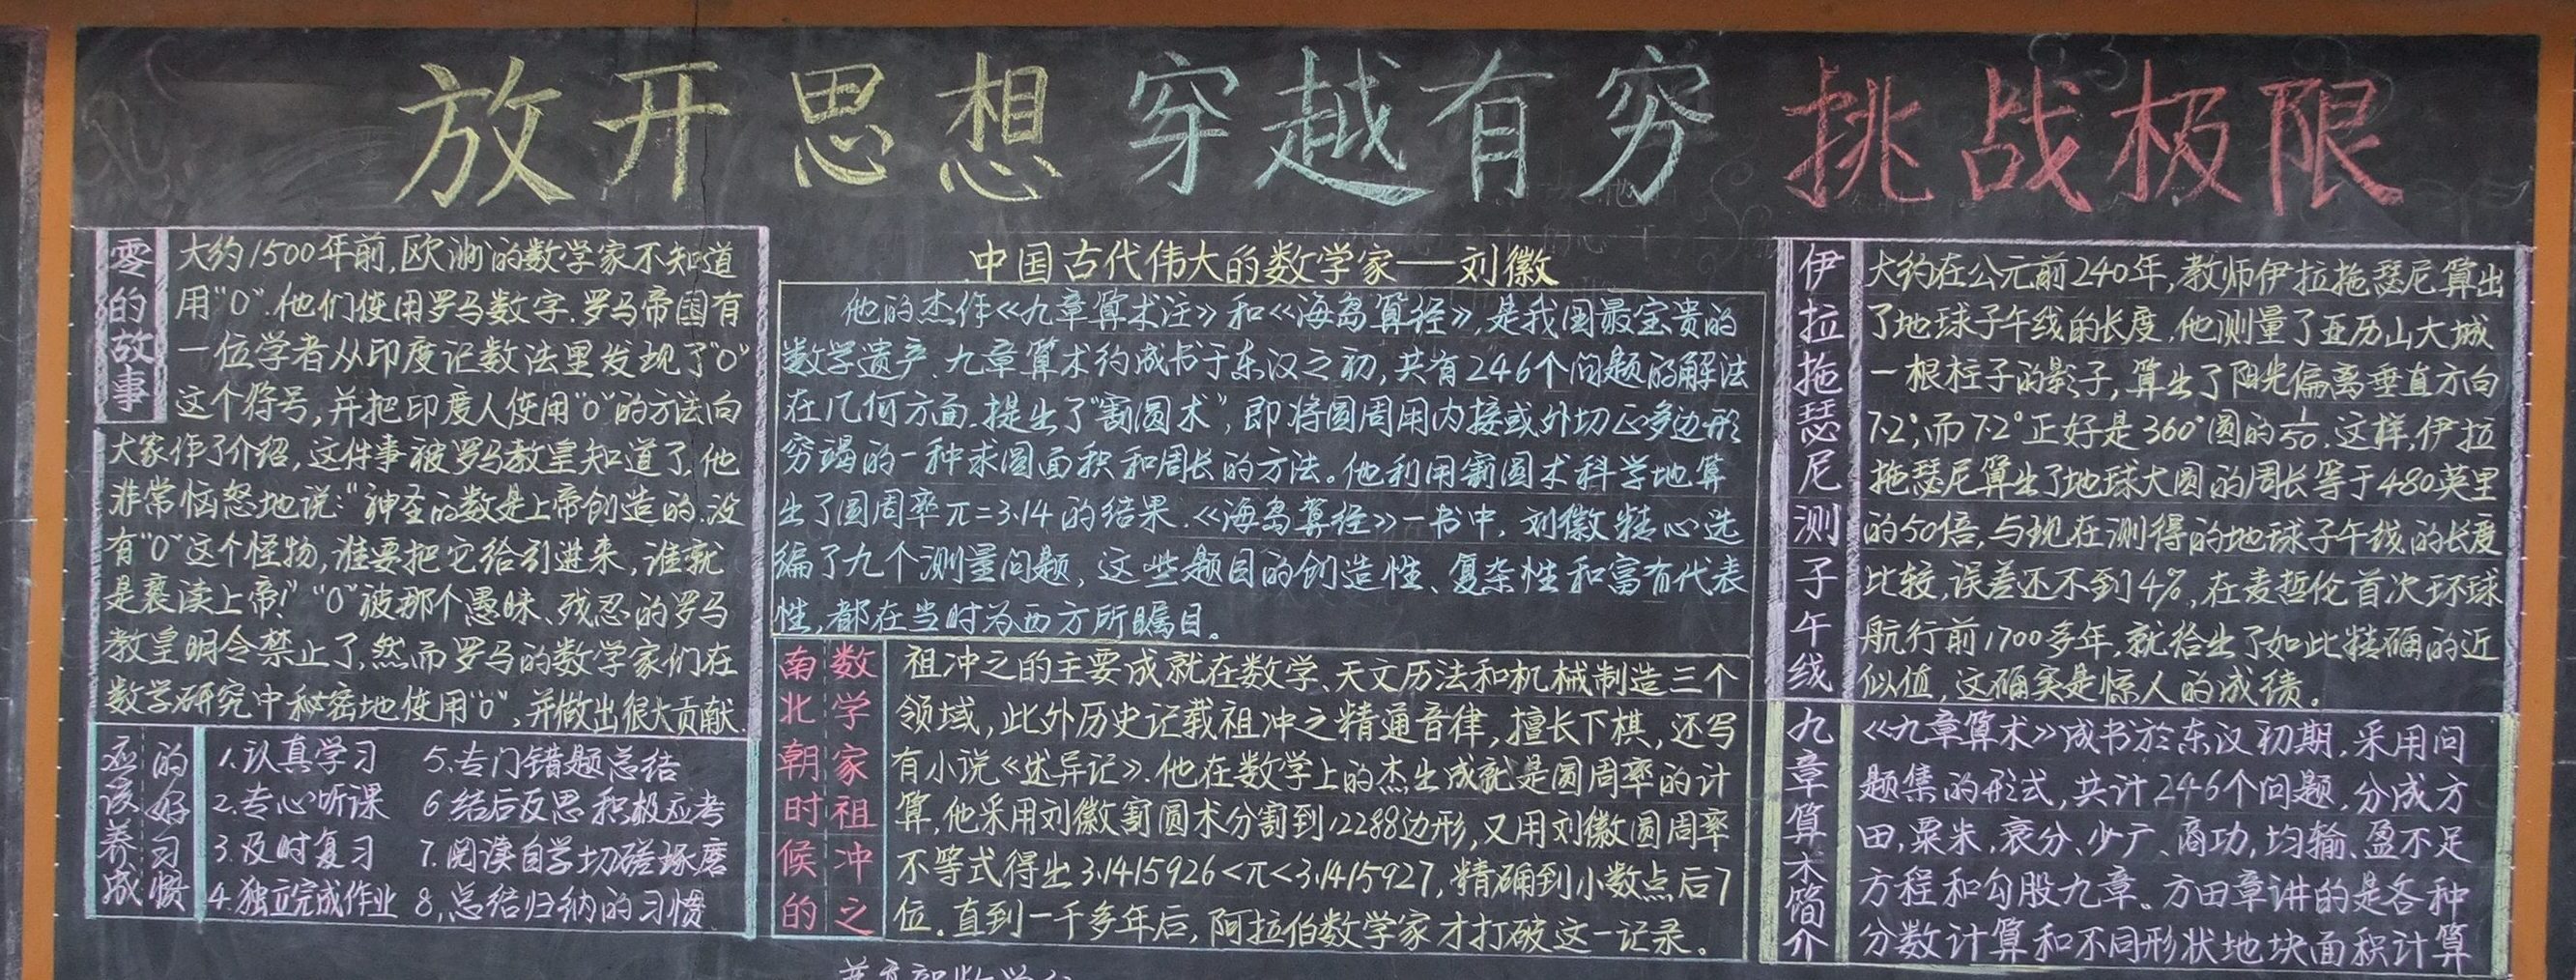 放开思想 穿越有穷 挑战极限
零的故事
大约1500年前,欧洲的数学家不知道
用"0".他们使用罗马数字.罗马帝国有
一位学者从印度记数法里发现了"0"
这个符号,并把印度人使用"0"的方法向
大家作了介绍,这件事被罗马教皇知道了,他
非常恼怒地说:"神圣的数是上帝创造的.没
有"0"这个怪物,谁要把它给引进来,谁就
是亵渎上帝!" "0"被那个愚昧、残忍的罗马
教皇明令禁止了,然而罗马的数学家们在
数学研究中秘密地使用"0",并做出很大贡献.
应该养成
的好习惯
1.认真学习
2.专心听课
3.及时复习
4.独立完成作业
5.专门错题总结
6.结后反思积极应考
7.阅读自学切磋琢磨
8,总结归纳的习惯
中国古代伟大的数学家——刘徽
他的杰作《九章算术注》和《海岛算经》,是我国最宝贵的
数学遗产.九章算术约成书于东汉之初,共有246个问题的解法
在几何方面.提出了"割圆术",即将圆周用内接或外切正多边形
穷竭的一种求圆面积和周长的方法。他利用割圆术科学地算
出了圆周率π=3.14的结果.《海岛算经》一书中,刘徽精心选
编了九个测量问题,这些题目的创造性、复杂性和富有代表
性,都在当时为西方所瞩目。
南北朝时候的
数学家祖冲之
祖冲之的主要成就在数学、天文历法和机械制造三个
领域,此外历史记载祖冲之精通音律,擅长下棋,还写
有小说《述异记》.他在数学上的杰出成就是圆周率的计
算,他采用刘徽割圆术分割到12288边形,又用刘徽圆周率
不等式得出3.1415926<π<3.1415927,精确到小数点后7
位.直到一千多年后,阿拉伯数学家才打破这一记录。
伊拉拖瑟尼测子午线
大约在公元前240年,教师伊拉拖瑟尼算出
了地球子午线的长度,他测量了亚历山大城
一根柱子的影子,算出了阳光偏离垂直方向
7.2°,而7.2°正好是360°圆的1/50.这样,伊拉
拖瑟尼算出了地球大圆的周长等于480英里
的50倍,与现在测得的地球子午线的长度
比较,误差还不到4%,在麦哲伦首次环球
航行前1700多年,就给出了如此精确的近
似值,这确实是惊人的成绩。
九章算术简介
《九章算术》成书於东汉初期,采用问
题集的形式,共计246个问题,分成方
田,粟米,衰分、少广、商功,均输、盈不足
方程和勾股九章。方田章讲的是各种
分数计算和不同形状地块面积计算